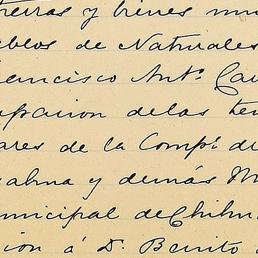 tierras y bienes mu
eblos de Naturales
rancisco Ant.º Cau
upacion delas te
ares de la Comp.ª de
alma y demás M
unicipal de Chihu
cion á D. Benito